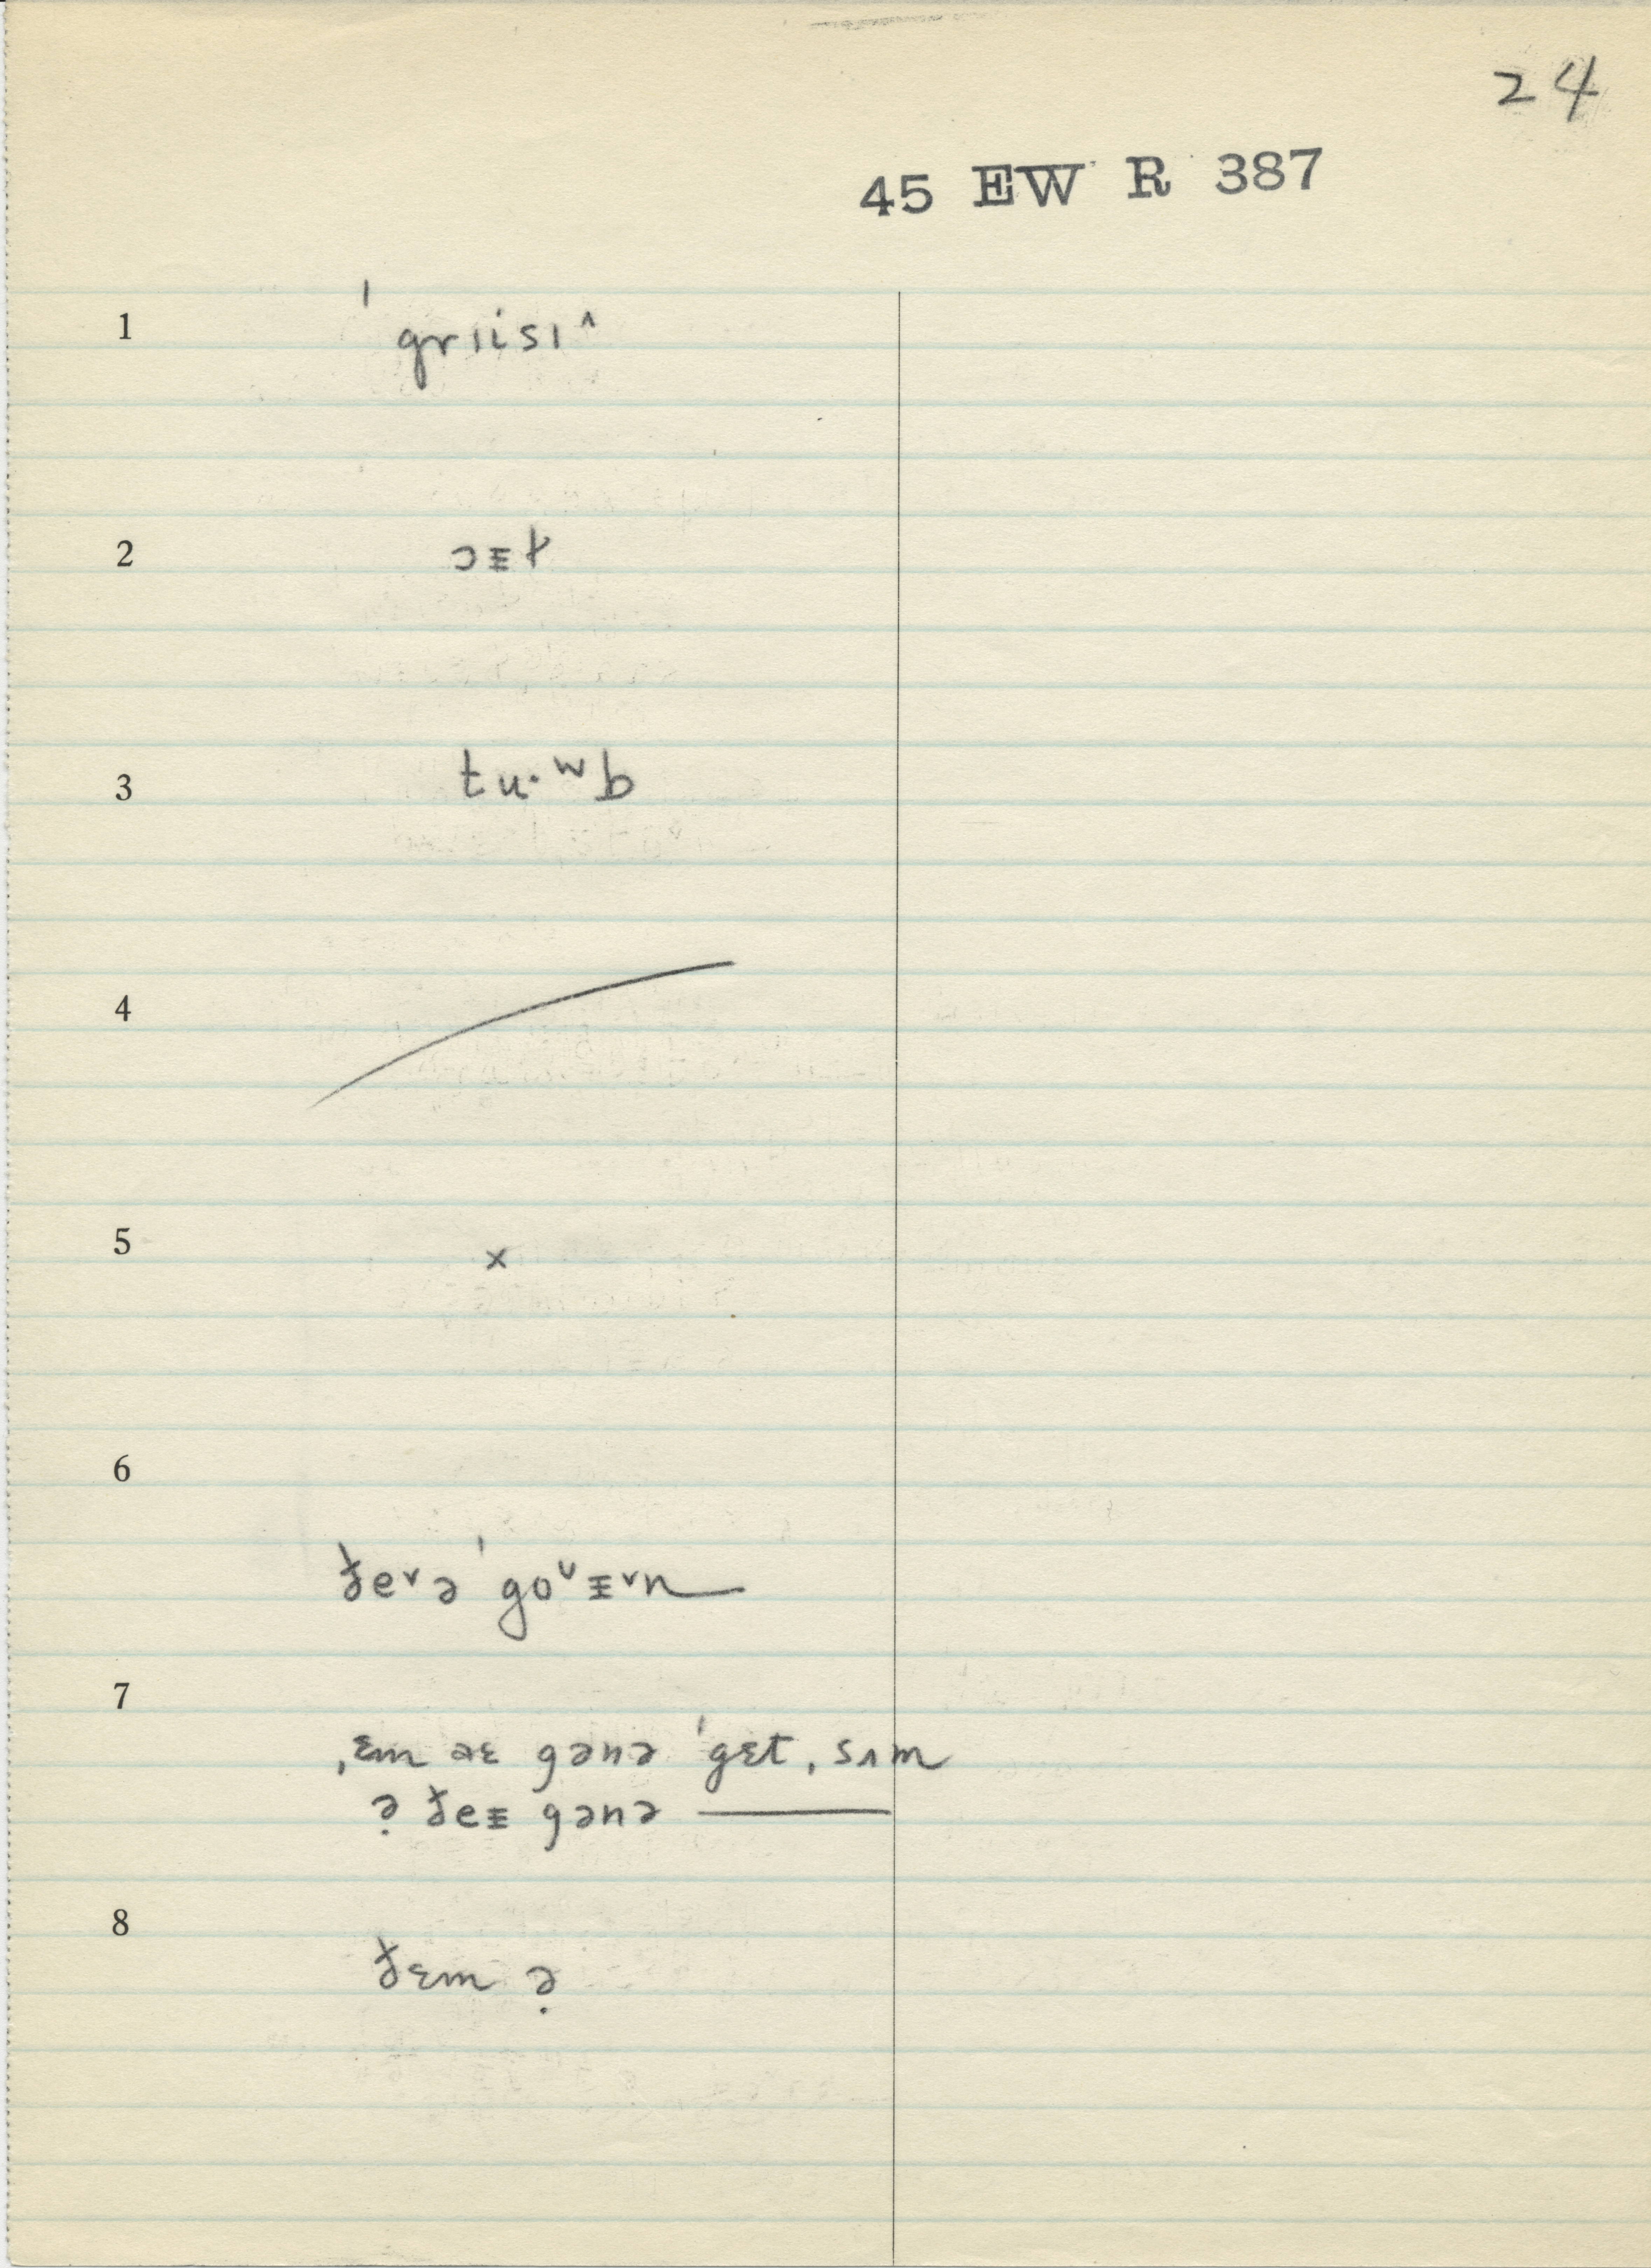 24
45 EW R 387
1 ˈgrɪisɪ^
2 ɔᵻɫ
3 tu·ʷb
4
5 x
6
ðe˅ə ˈgo˅ᵻ˅n
7
ˌɛm aɛ gənə ˈgɛt ˌsʌm
ə̣ ðeᵻ gənə ———
8
ðɛm ə̣